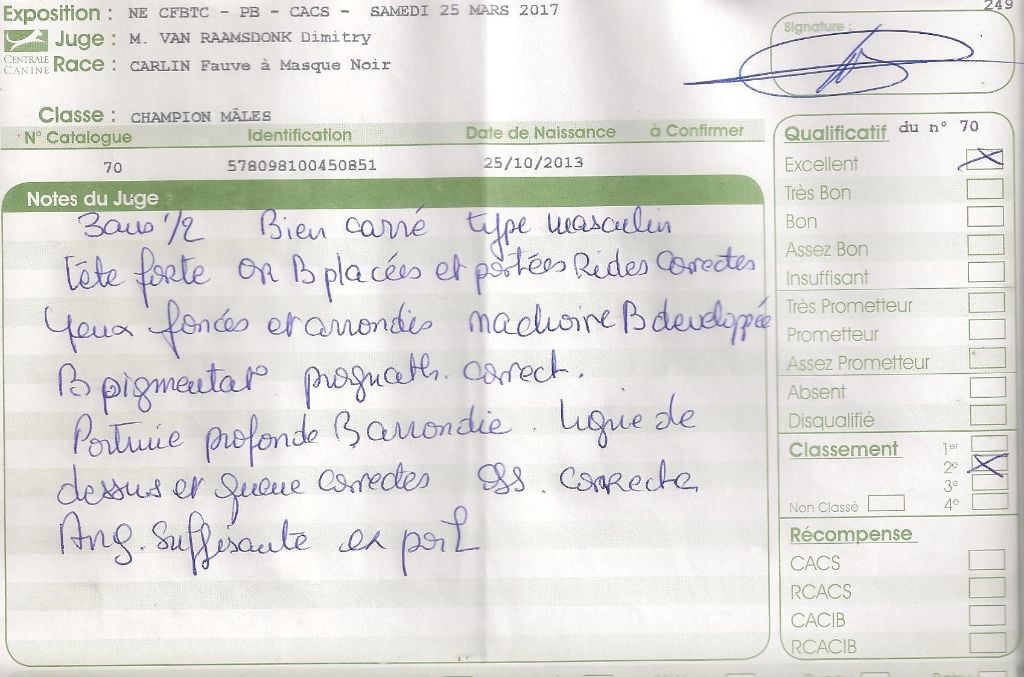 249
Exposition : NE CFBTC - PB - CACS - SAMEDI 25 MARS 2017
Signature :
Juge : M. VAN RAAMSDONK Dimitry
CENTRALE CANINE
Race : CARLIN Fauve à Masque Noir
Classe : CHAMPION MÂLES
N° Catalogue Identification Date de Naissance à Confirmer
70 578098100450851 25/10/2013
Notes du Juge
3 ans 1/2 Bien carré type masculin
tête forte OR B placées et portées Rides Correctes
Yeux foncés et arrondis machoire B developpée
B pigmentat° prognath. correct.
Poitrine profonde B arrondie. ligne de
dessus et queue correctes Oss. correcte
Ang. Suffisante ex poil
Qualificatif du n° 70
Excellent
Très Bon
Bon
Assez Bon
Insuffisant
Très Prometteur
Prometteur
Assez Prometteur
Absent
Disqualifié
Classement 1er
2e
3e
Non Classé 4e
Récompense
CACS
RCACS
CACIB
RCACIB